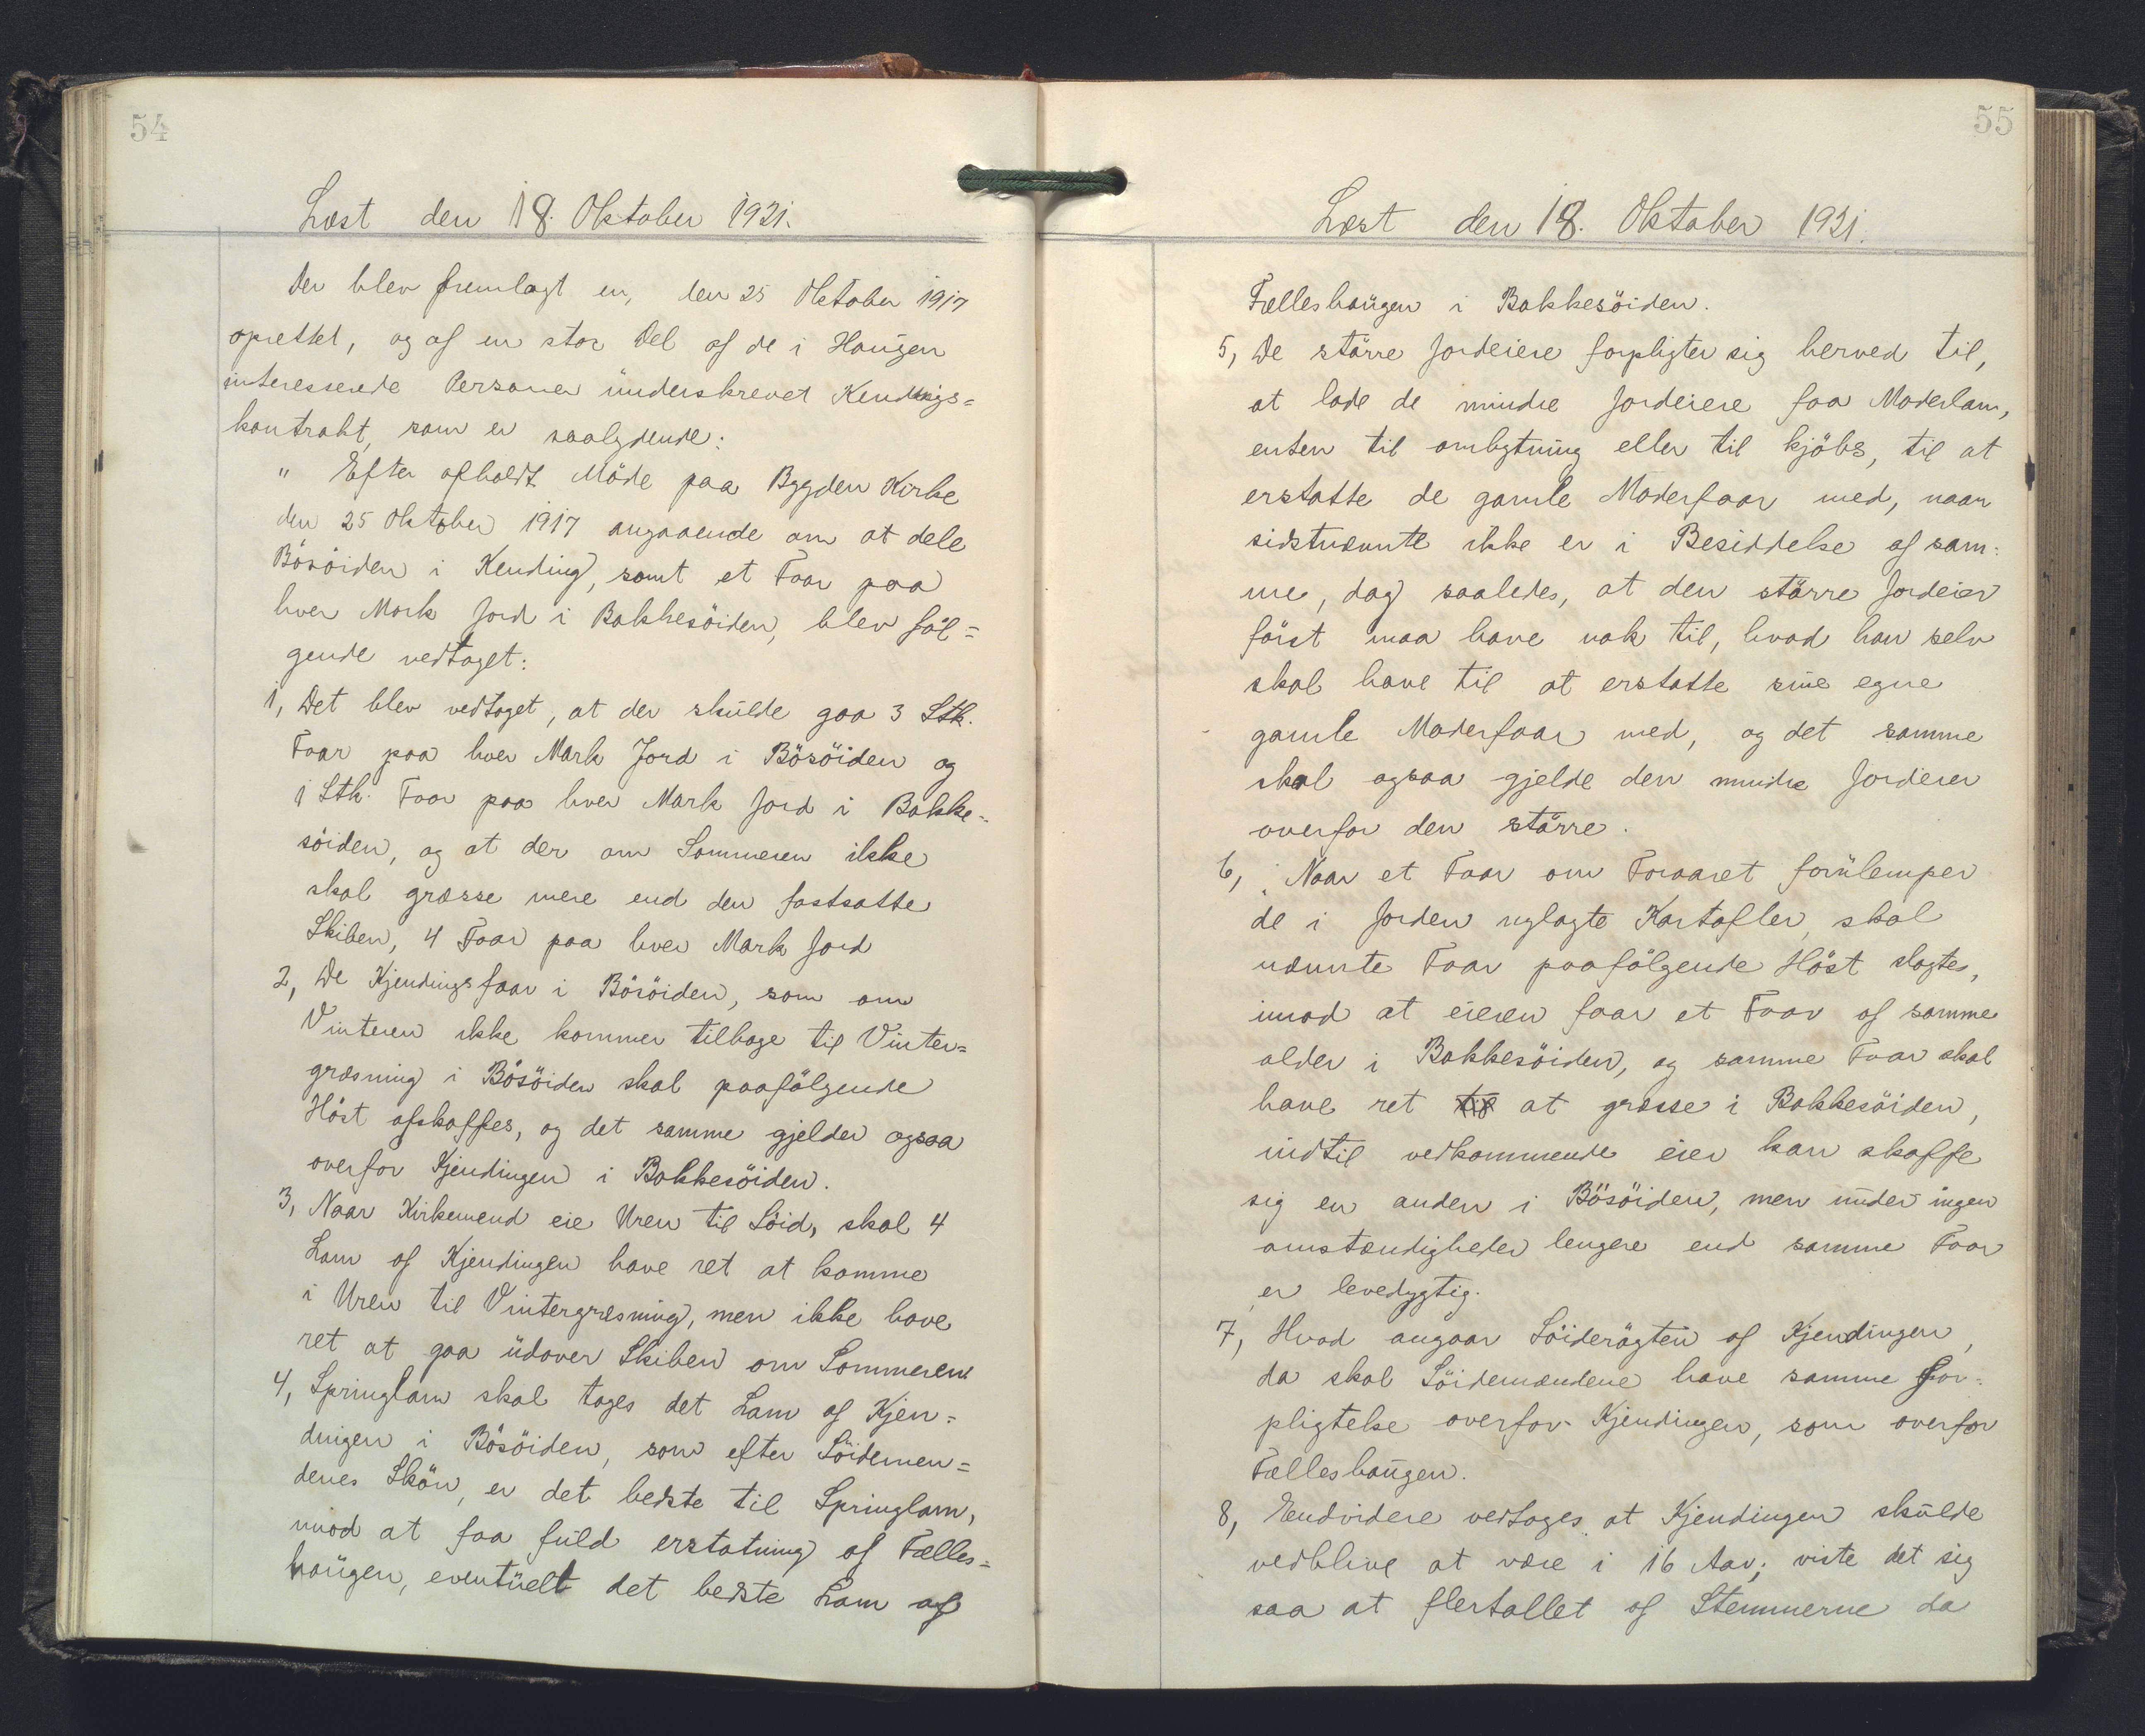 54
Læst den 18. Oktober 1921.
Der blev fremlagt en, den 25 Oktober 1917
oprettet, og af en stor Del af de i Haugen
interesserede Personer underskrevet Kendings=
kontrakt, som er saalydende:
" Efter afholdt Möde paa Bygden Kirke
den 25 Oktober 1917 angaaende om at dele
Bösöiden i Kending, samt et Faar paa
hver Mark Jord i Bakkesöiden, blev föl=
gende vedtaget:
1, Det blev vedtaget, at der skulde gaa 3 Stk.
Faar paa hver Mark Jord i Bösöiden og
1 Stk. Faar paa hver Mark Jord i Bakke=
söiden, og at der om Sommeren ikke
skal græsse mere end den fastsatte
Skiben, 4 Faar paa hver Mark Jord
2, De Kjendingsfaar i Bösöiden, som om
Vinteren ikke kommer tilbage til Vinter=
græsning i Bösöiden skal paafölgende
Höst afskaffes, og det samme gjelder ogsaa
overfor Kjendingen i Bakkesöiden.
3, Naar Kirkemend eie Uren til Söid, skal 4
Lam af Kjendingen have ret at komme
i Uren til Vintergræsning, men ikke have
ret at gaa udover Skiben om Sommeren
4, Springlam skal tages det Lam af Kjen=
dingen i Bösöiden, som efter Söidemen=
denes Skön, er det bedste til Springlam,
imod at faa fuld erstatning af Fælles=
haugen, eventuelt det bedste Lam af
55
Læst den 18. Oktober 1921.
Fælleshaugen i Bakkesöiden.
5, De större Jordeiere forpligter sig herved til,
at lade de mindre Jordeiere faa Moderlam,
enten til ombytning eller til kjöbs, til at
erstatte de gamle Moderfaar med, naar
sidstnævnte ikke er i Besiddelse af sam=
me, dog saaledes, at den större Jordeier
först maa have nok til, hvad han selv
skal have til at erstatte sine egne
gamle Moderfaar med, og det samme
skal ogsaa gjelde den mindre Jordeier
overfor den större.
6, Naar et Faar om Foraaret forulemper
de i Jorden nylagte Kartofler, skal
nævnte Faar paafölgende Höst slagtes,
imod at eieren faar et Faar af samme
alder i Bakkesöiden, og samme Faar skal
have ret til at græsse i Bakkesöiden,
indtil vedkommende eier kan skaffe
sig en anden i Bösöiden, men under ingen
omstændigheder lengere end samme Faar
er levedygtig.
7, Hvad angaar Söiderögten af Kjendingen,
da skal Söidemændene have samme For=
pligtelse overfor Kjendingen, som overfor
Fælleshaugen.
8, Endvidere vedtoges at Kjendingen skulde
vedblive at være i 16 Aar; viste det sig
saa at flertallet af Stemmerne da